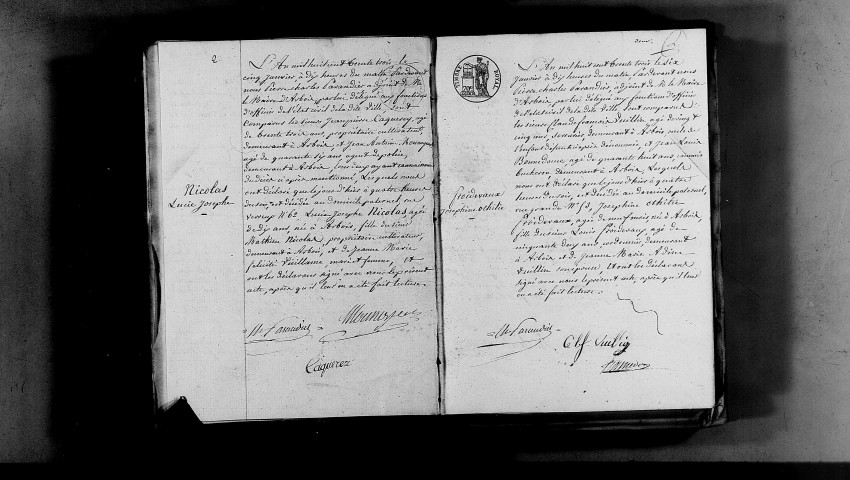 2
L'An mil huit cent trente trois, le
cinq janvier, à dix heures du matin, Pardevant
nous Pierre Charles Parandier, adjoint de Mr
le Maire d'Arbois par lui délégué aux fonctions
d'officier de l'état civil de la dite Ville, sont
comparus les sieurs Jean Pierre Cagueroz, agé
de trente trois ans, propriétaire cultivateur,
demeurant à Arbois, et Jean Antoine
agé de quarante six ans agent de police,
demeurant à Arbois, tous deux ayant connaissance
du décès ci après mentionné, Lesquels nous
ont déclaré que le jour d'hier à quatre heures
du soir, est décédée au domicile paternel, rue
Nº 62, Lucie Josephe Nicolas agée
de dix ans, née à Arbois, fille du sieur
Mathieu Nicolas, propriétaire cultivateur,
demeurant à Arbois, et de Jeanne Marie
félicité Vuillame mari et femme, Et
ont les déclarans signé avec nous le présent
acte, après qu'il leur en a été fait lecture.
Nicolas
Lucie Josephe
Cagueroz
deux
TIMBRE ROYAL
L'An mil huit cent trente trois le six
janvier, à dix heures du matin, Pardevant nous
Pierre Charles Parandier, adjoint de Mr le Maire
d'Arbois par lui délégué aux fonctions d'officier
de l'état civil de la dite Ville, sont comparus
les sieurs Claude françois Vuillin, agé de vingt
cinq ans, demeurant à Arbois oncle de
l'enfant défunte ci après dénommée, et Jean Louis
agé de quarante huit ans
demeurant à Arbois, Lesquels
nous ont déclaré que le jour d'hier à quatre
heures du soir, est décédée au domicile paternel,
rue grande Nº Josephine Othilie
Froidevaux, agée de un mois, née à Arbois,
fille du sieur Louis Froidevaux, agé de
cinquante deux ans, cordonnier, demeurant
à Arbois et de Jeanne Marie
Vuillin son épouse, Et ont les déclarans
signé avec nous le présent acte, après qu'il leur
en a été fait lecture.
Froidevaux
Josephine Othilie